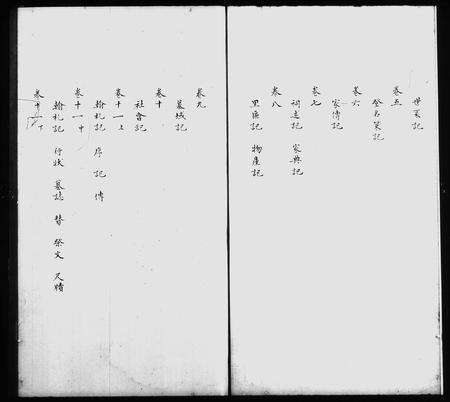 世系記
卷五
登名策記
卷六
家傳記
卷七
祠墓記 家典記
卷八
里區記 物產記
卷九
墓域記
卷十
社會記
卷十一上
翰札記 序 記 傳
卷十一中
翰札記 行狀 墓誌 贊 祭文 尺牘
卷十一下